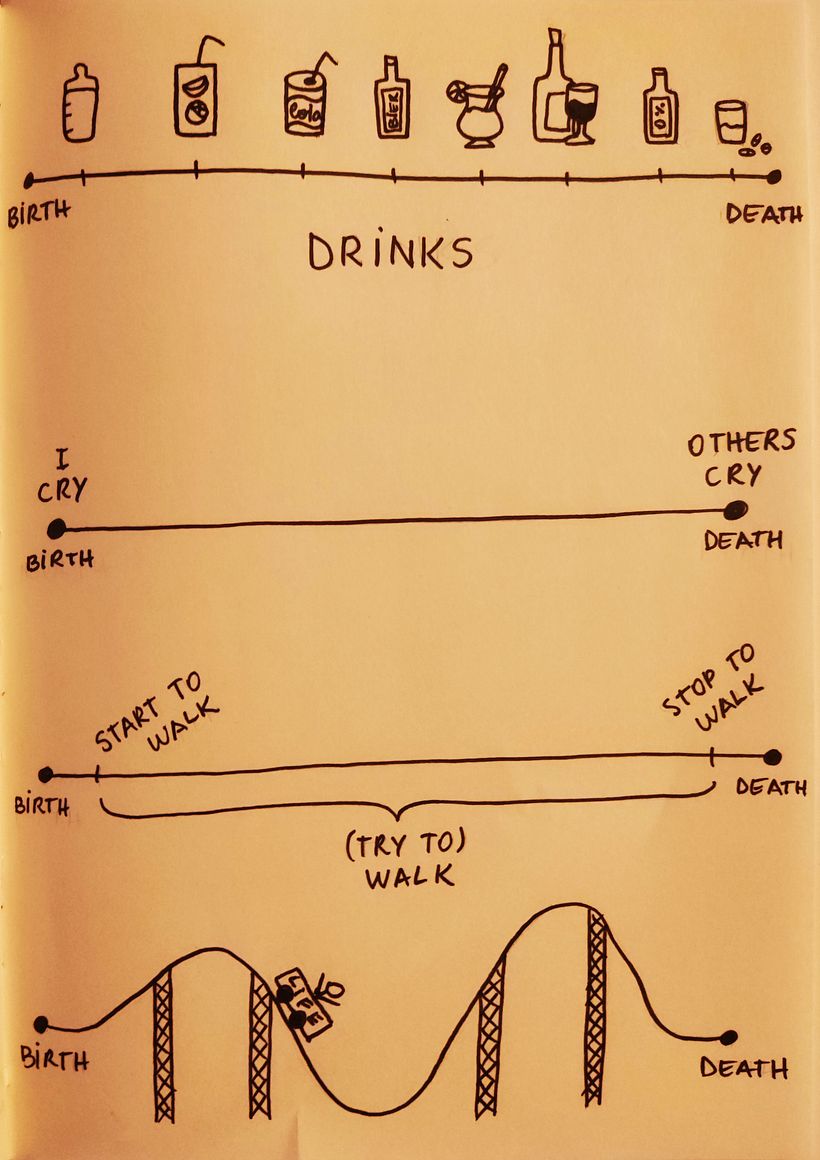 Cola
BIER
0%
BIRTH
DEATH
DRINKS
I
CRY
OTHERS
CRY
BIRTH
DEATH
START TO
WALK
STOP TO
WALK
BIRTH
DEATH
(TRY TO)
WALK
LIFE
BIRTH
DEATH